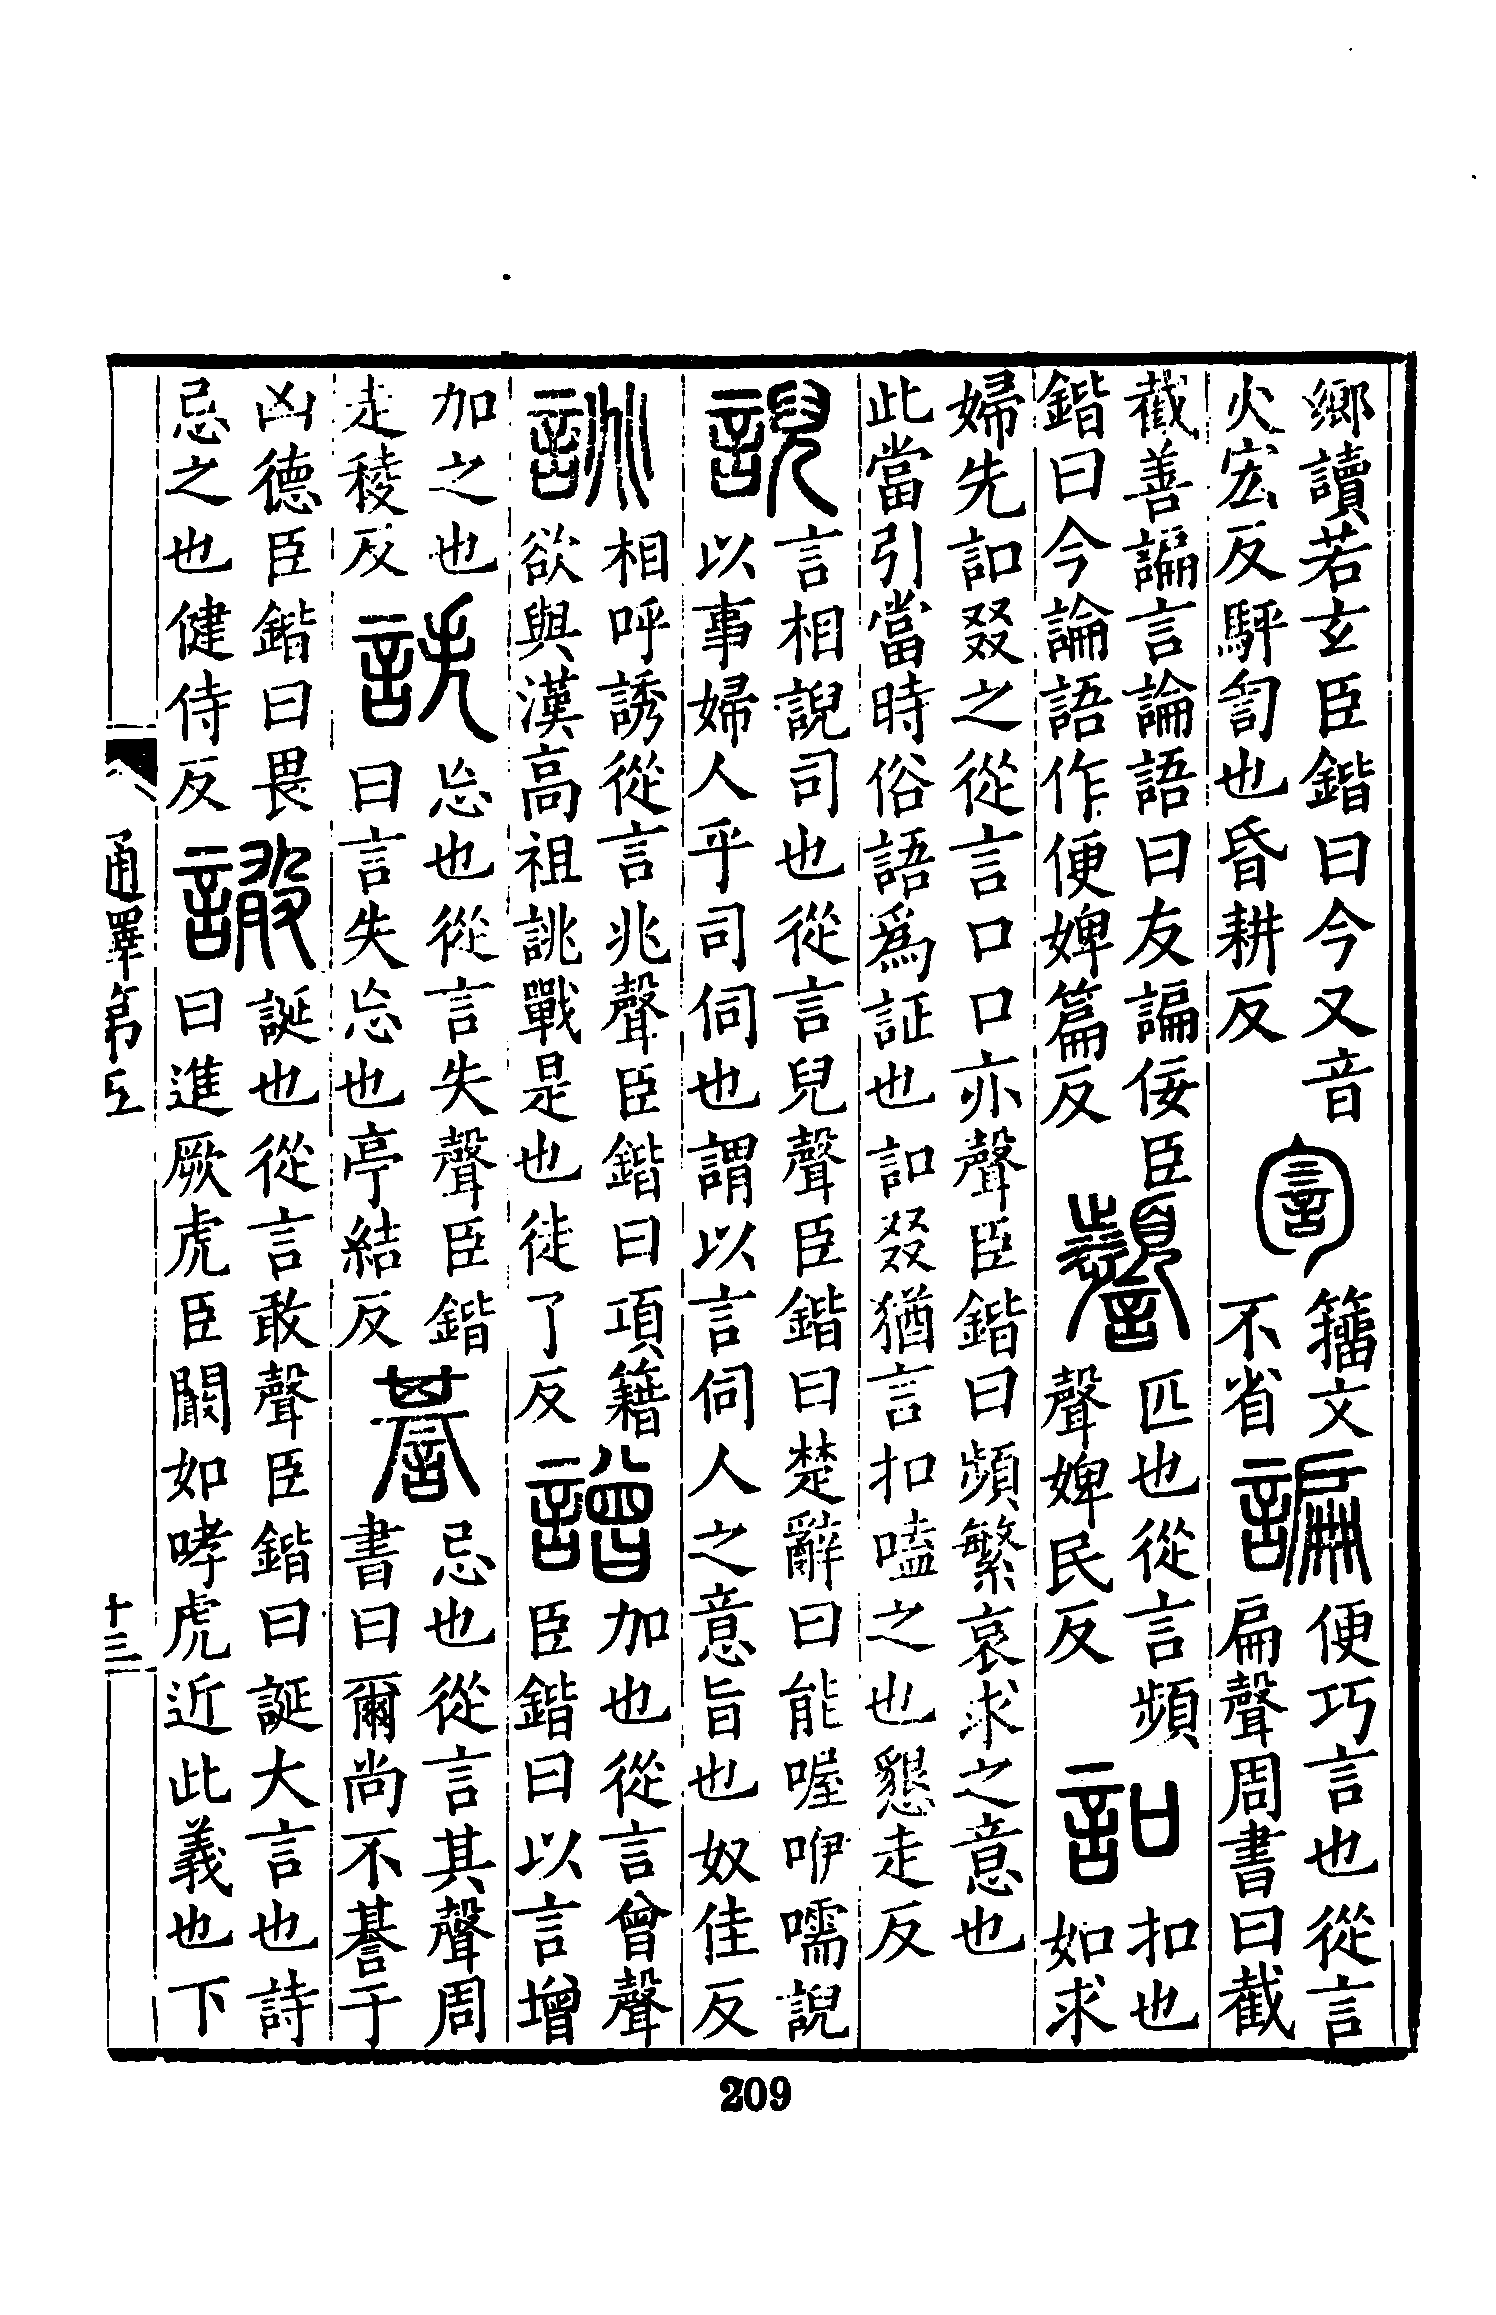 鄉讀若玄臣鍇曰今又音
火宏反騂訇也昏耕反
訇
籀文
不省
諞
便巧言也從言
扁聲周書曰截
截善諞言論語曰友諞佞臣
鍇曰今論語作便婢篇反
匹也從言頻
聲婢民反
𧥣
扣也
如求
婦先𧥣叕之從言口口亦聲臣鍇曰頻繁哀求之意也
此當引當時俗語爲証也𧥣叕猶言扣嗑之也懇走反
誽
言相誽司也從言兒聲臣鍇曰楚辭曰能喔咿嚅誽
以事婦人乎司伺也謂以言伺人之意旨也奴佳反
誂
相呼誘從言兆聲臣鍇曰項籍
欲與漢高祖誂戰是也徒了反
譄
加也從言曾聲
臣鍇曰以言增
加之也
走稜反
詄
忘也從言失聲臣鍇
曰言失忘也亭結反
諅
忌也從言其聲周
書曰爾尚不諅于
凶德臣鍇曰畏
忌之也健侍反
譀
誕也從言敢聲臣鍇曰誕大言也詩
曰進厥虎臣闞如哮虎近此義也下
通釋第五
十三
209